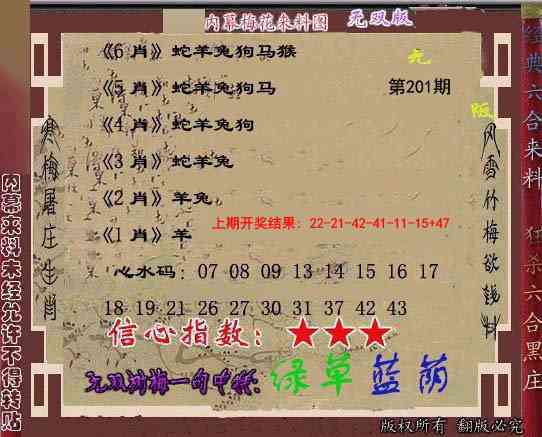 内幕梅花来料图 无双版
《6 肖》蛇羊兔狗马猴
无
《5 肖》蛇羊兔狗马 第201期
版
《4 肖》蛇羊兔狗
《3 肖》蛇羊兔
《2 肖》羊兔
上期开奖结果: 22-21-42-41-11-15+47
《1 肖》羊
心水码: 07 08 09 13 14 15 16 17
18 19 21 26 27 30 31 37 42 43
信心指数: ★★★
绿草蓝荫
版权所有 翻版必究
寒梅屠庄生肖
风雪竹梅欲钱料
内幕来料未经允许不得转贴
经典六合来料 狂杀六合黑庄